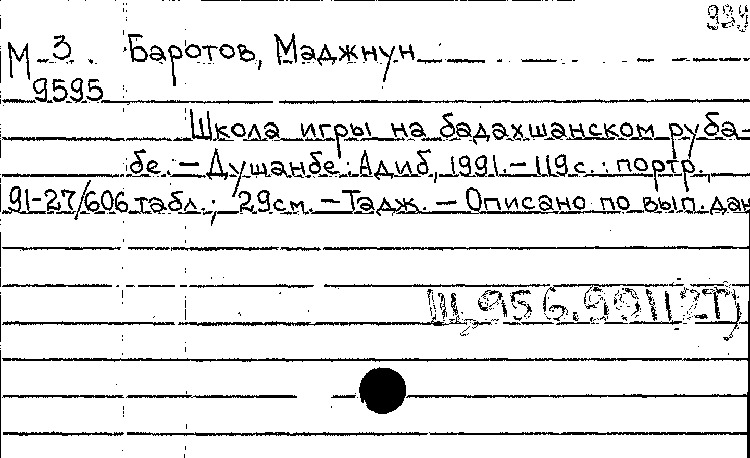 939
М 3 Баротов, Маджнун
9595
Школа игры на бадахшанском руба-
бе. — Душанбе: Адиб, 1991. — 119 с.: портр.,
91-27/606 табл.; 29 см. — Тадж. — Описано по вып. дан
Щ 956.9911(2Т)